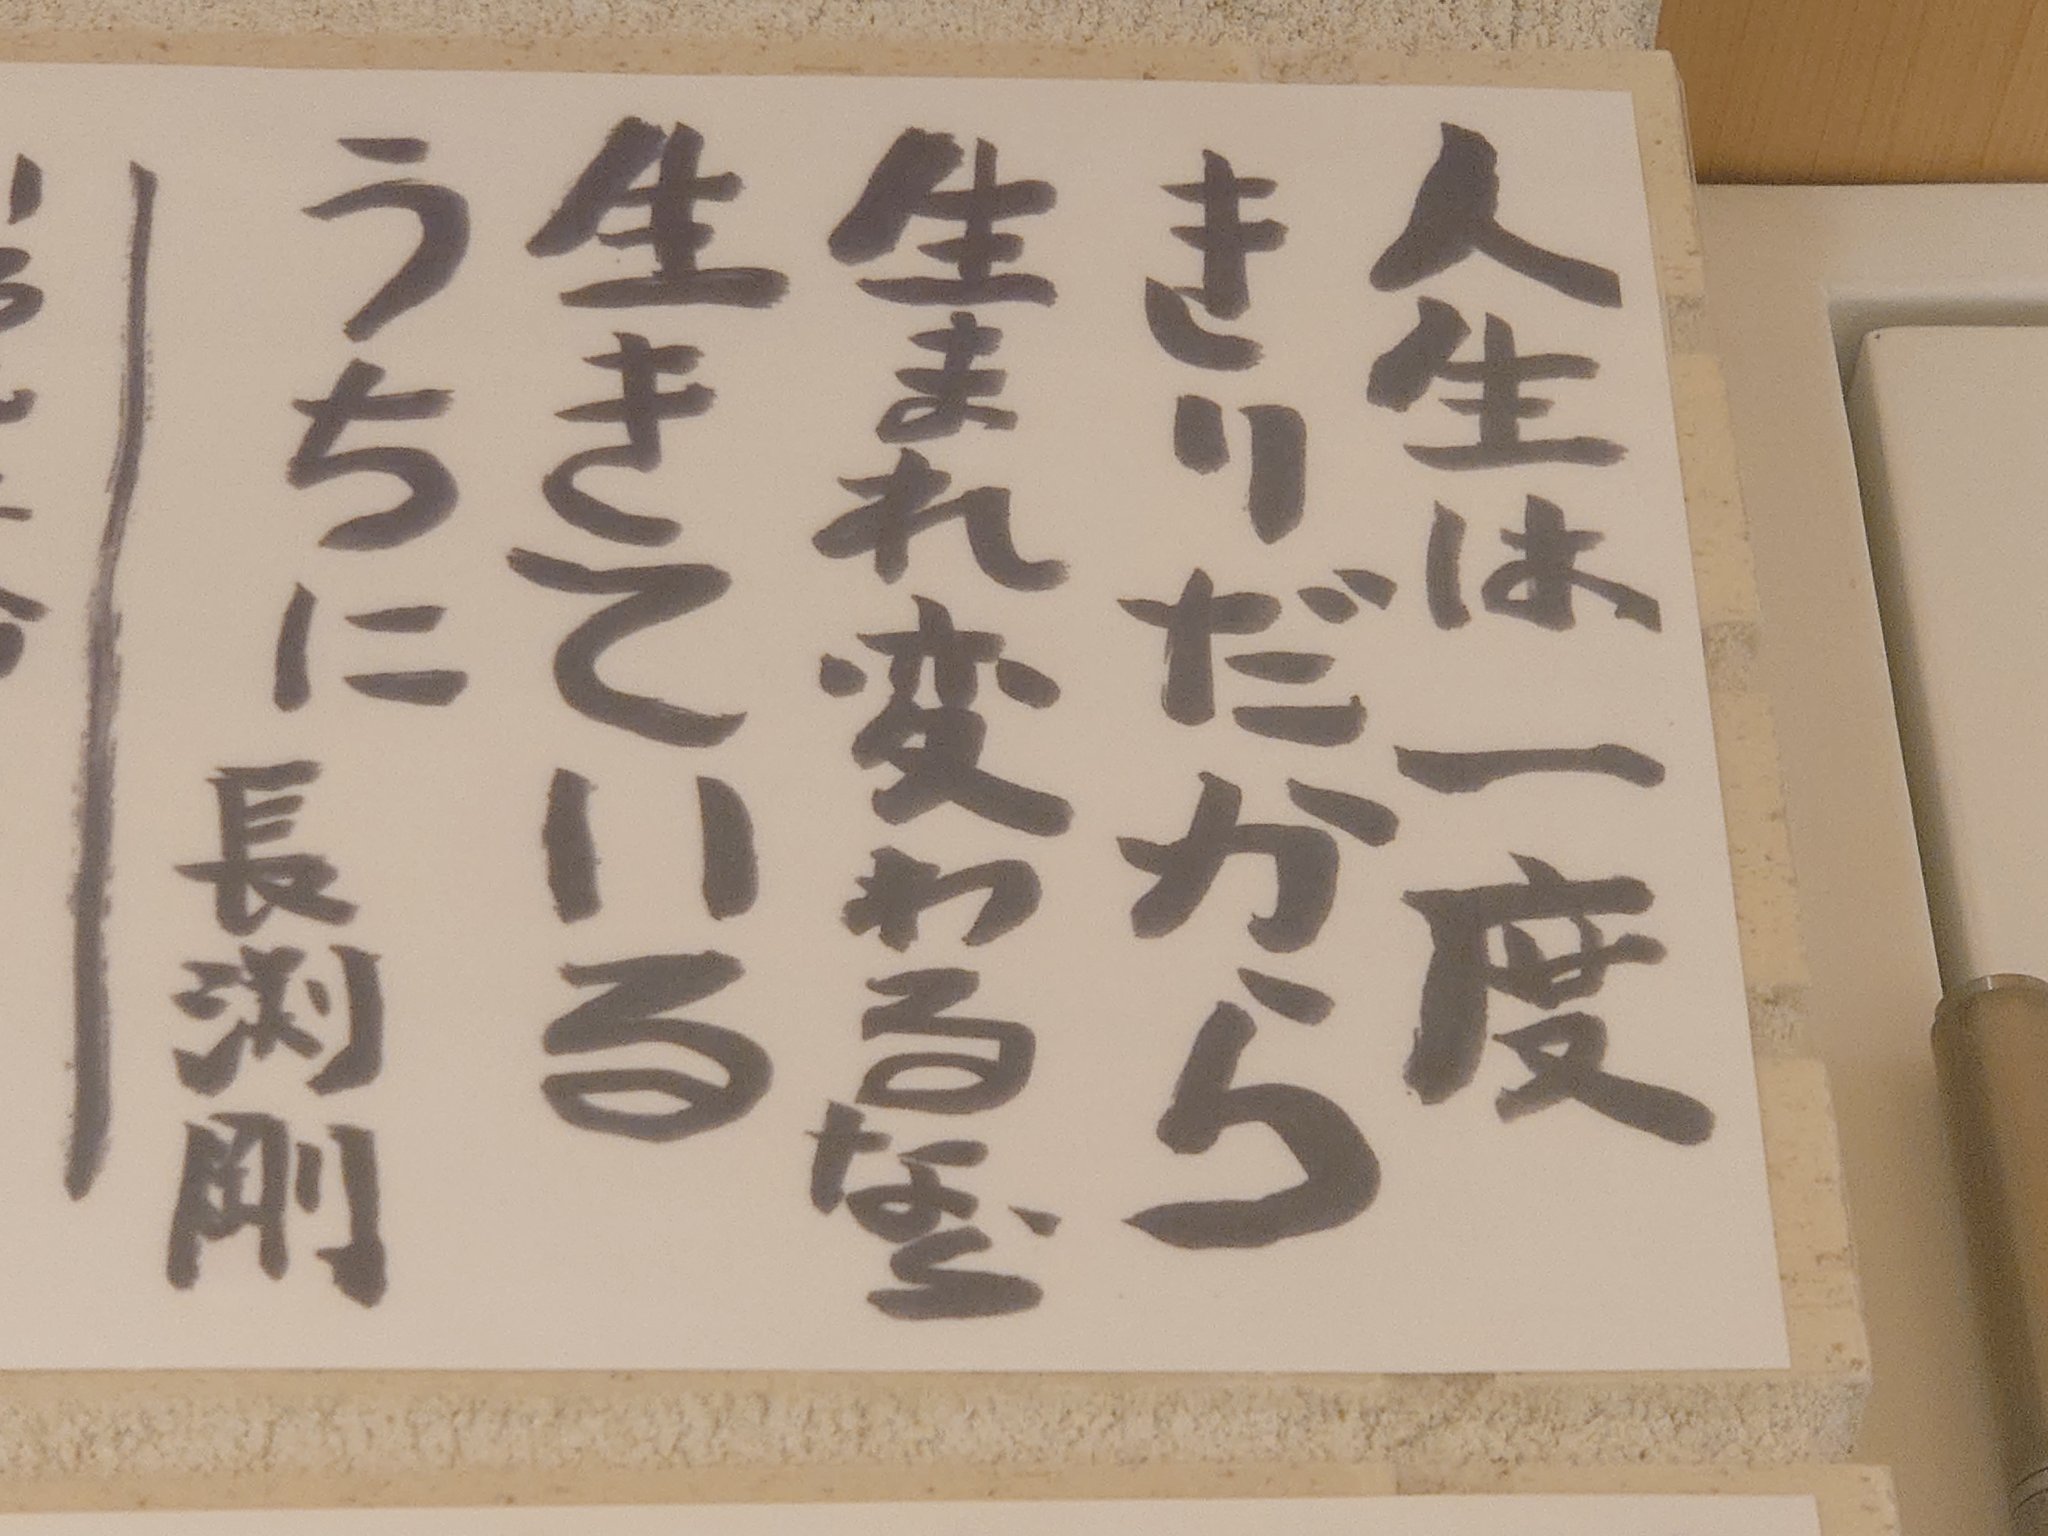 人生は一度
きりだから
生まれ変わるなら
生きている
うちに 長渕剛